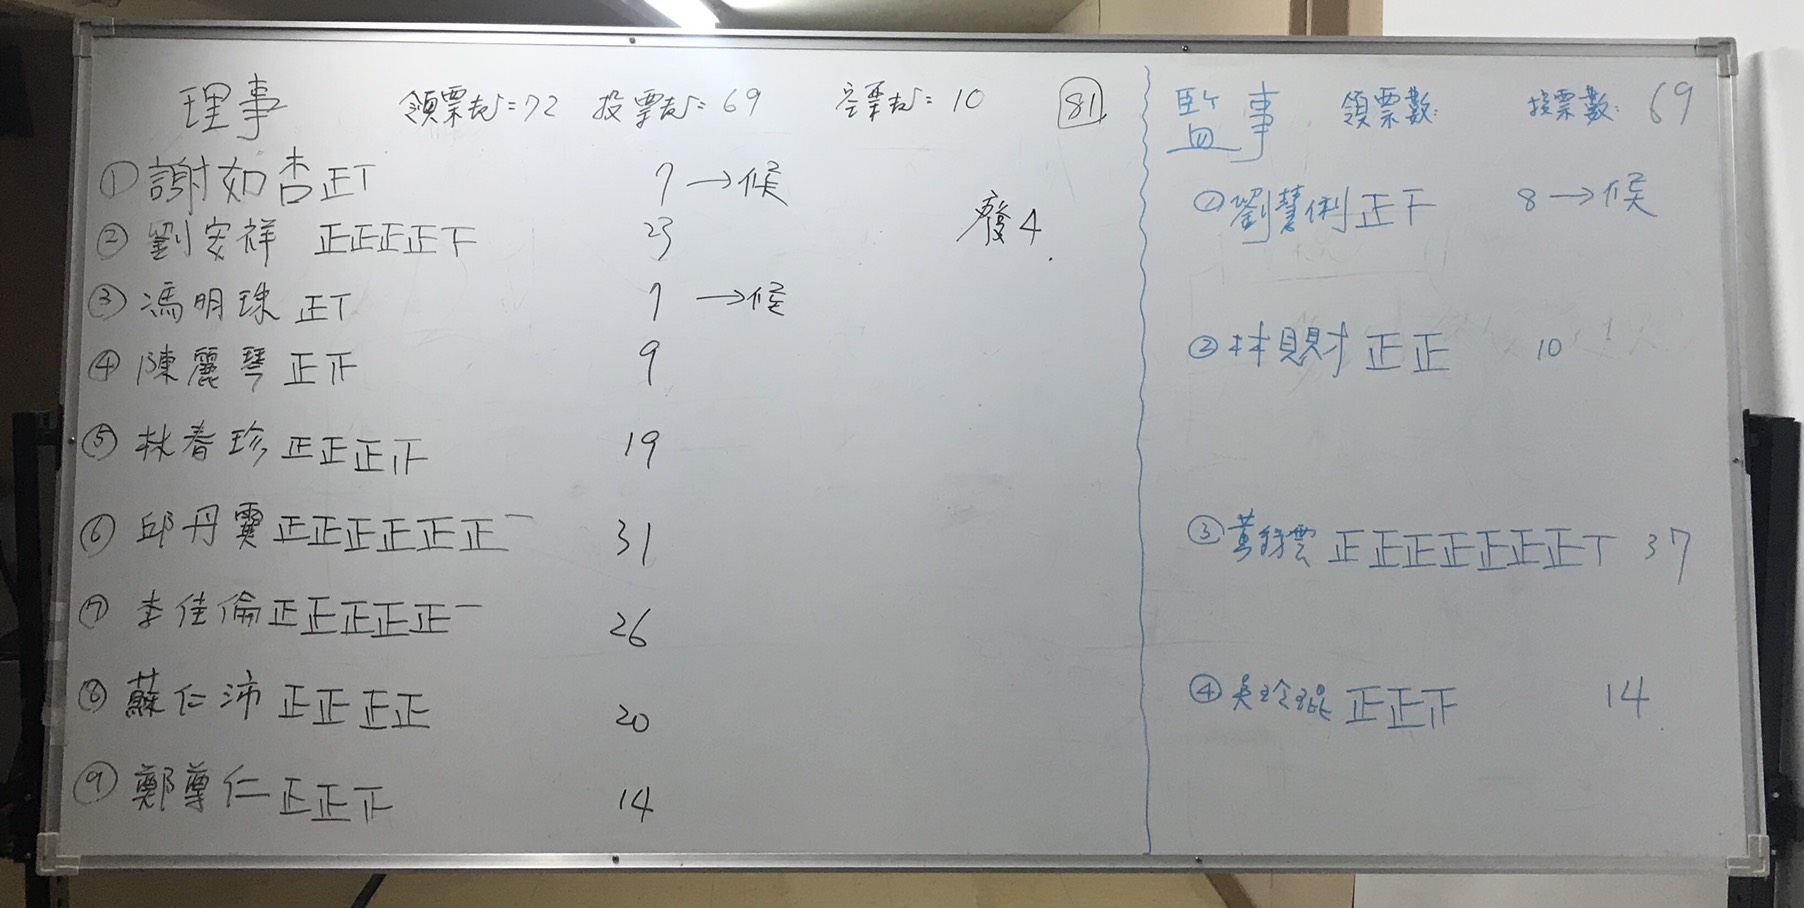 理事 領票数=72 投票数=69 空票数=10 81
①謝如杏正丅 7→候
②劉宏祥 正正正正下 23
廢4
③馮明珠 正丅 7→候
④陳麗琴正正 9
⑤林春珍正正正正 19
⑥邱丹霙正正正正正正一 31
⑦李佳倫正正正正正一 26
⑧蘇仁沛正正正正 20
⑨鄭尊仁正正正 14
監事 領票數: 投票數: 69
①劉慧俐正下 8→候
②林見財 正正 10
③黃 雲 正正正正正正正丅 37
④吳玲 正正正 14